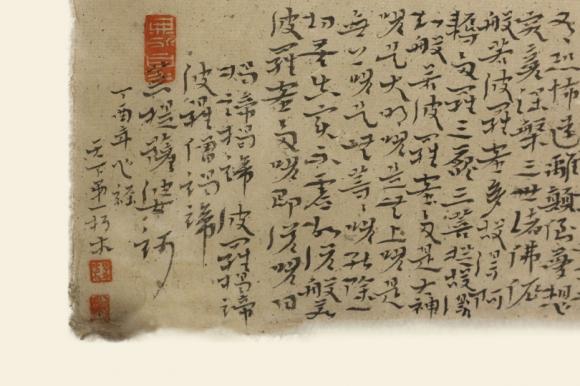 恐怖遠離顛倒夢想
究竟涅槃三世諸佛依
般若波羅蜜多故得阿
耨多羅三藐三菩提故
知般若波羅蜜多是大神
呪是大明呪是无上呪是
无上呪是無等等呪能除
切苦真實不虛故說般若
波羅蜜多呪即說呪曰
揭諦揭諦 波羅揭諦
波羅僧揭諦
菩提薩婆訶
丁酉年心經
天下第一朽木